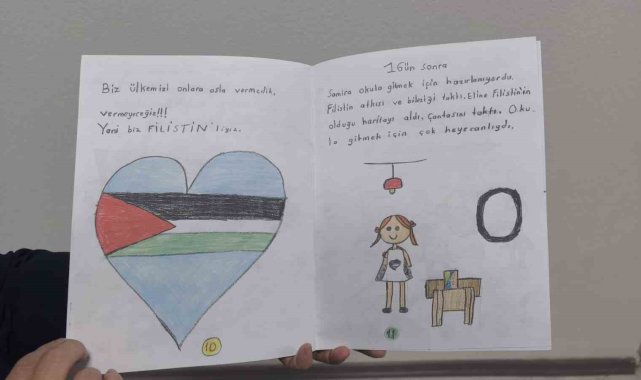 Biz ülkemizi onlara asla vermedik,
vermeyeceğiz!!!
Yani biz FİLİSTİN'liyiz.
10
1 Gün sonra
Samira okula gitmek için hazırlanıyordu.
Filistin atkısı ve bileziği taktı. Eline Filistin'in
olduğu haritayı aldı. Çantasını taktı. Oku.
la gitmek için çok heyecanlıydı.
11